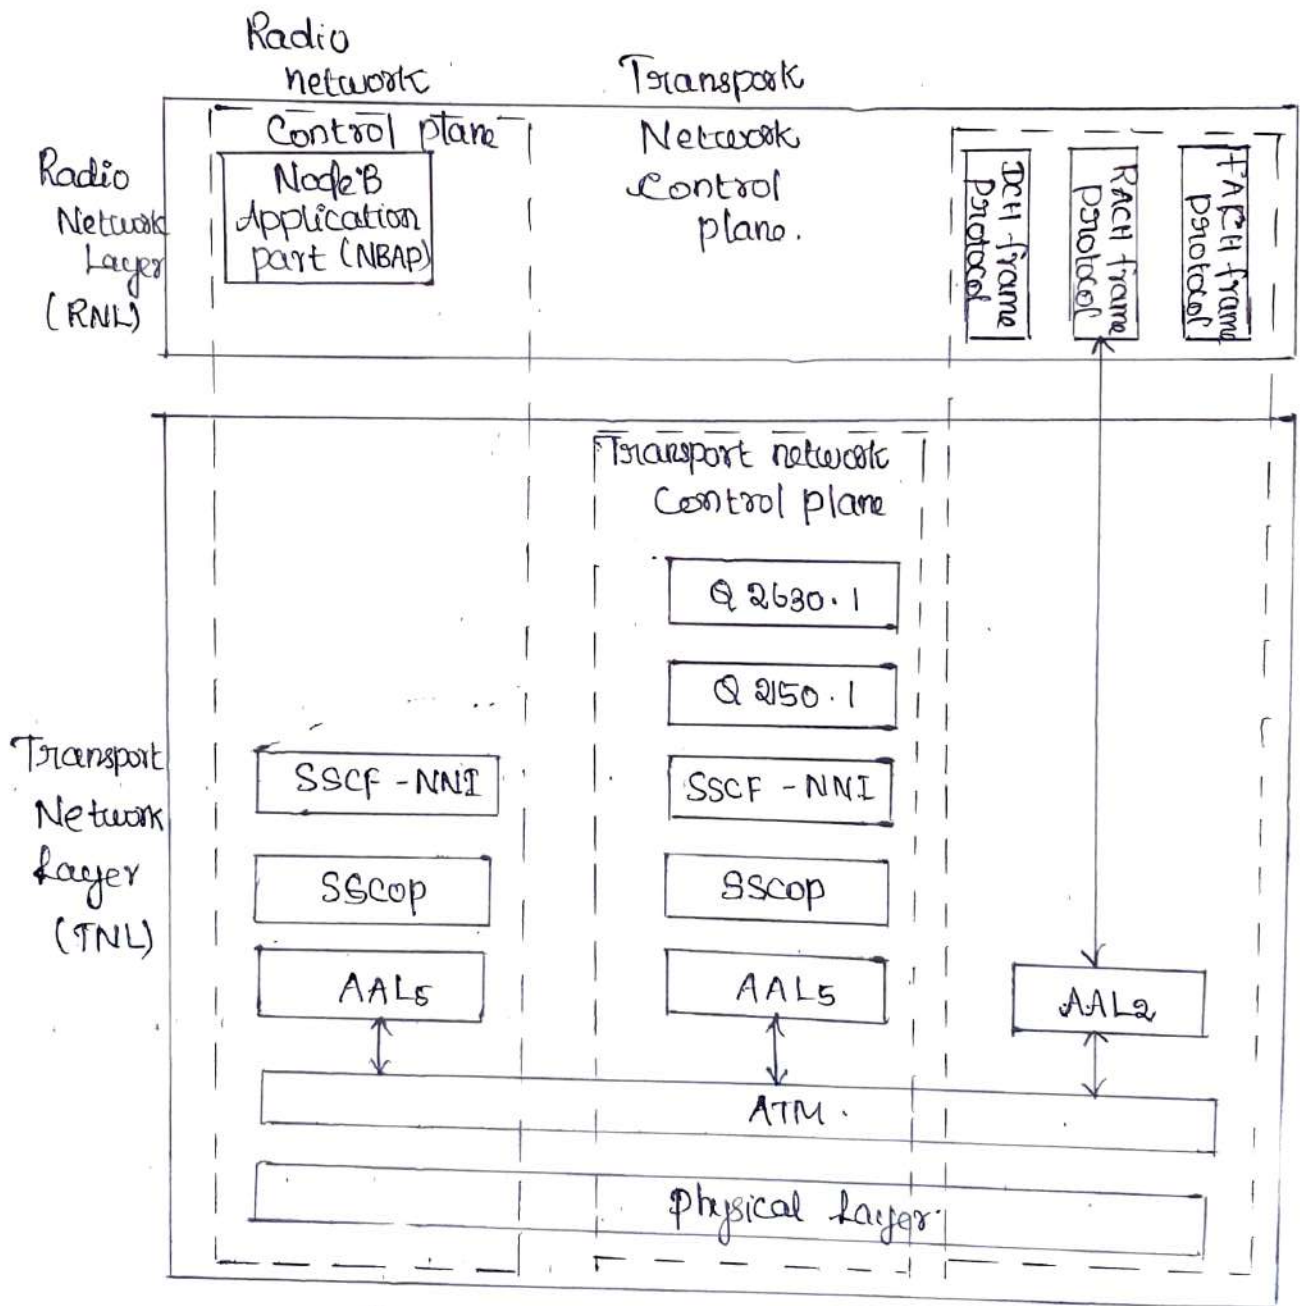 Radio
network
Transport
Control plane
Network
Control
plane.
Radio
Network
Layer
(RNL)
Node B
Application
part (NBAP)
DCH frame
protocol
RACH frame
protocol
FARCH frame
protocol
Transport network
Control plane
Q 2630.1
Q 2150.1
Transport
Network
Layer
(TNL)
SSCF - NNI
SSCF - NNI
SSCOP
SSCOP
AAL5
AAL5
AAL2
ATM.
Physical Layer.